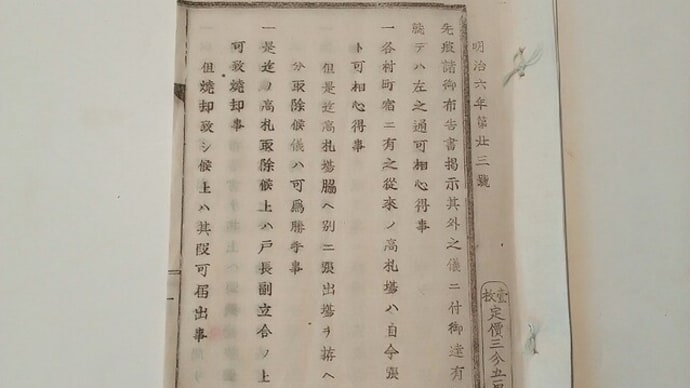 明治六年第廿三號
壹枚定價三分五
先般諸御布告書掲示其外之儀ニ付御達有
就テハ左之通可相心得事
一各村町宿ニ有之從來ノ高札塲ハ自今張
ト可相心得事
但是迄高札塲脇ヘ別ニ張出塲ヲ拵ヘ
分取除候儀ハ可爲勝手事
一是迄ノ高札取除候上ハ戸長副立合ノ上
可致燒却事
但燒却致シ候上ハ其段可届出事